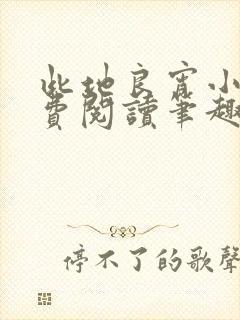 此地良宵小
費閱讀筆趣
停不了的歌聲